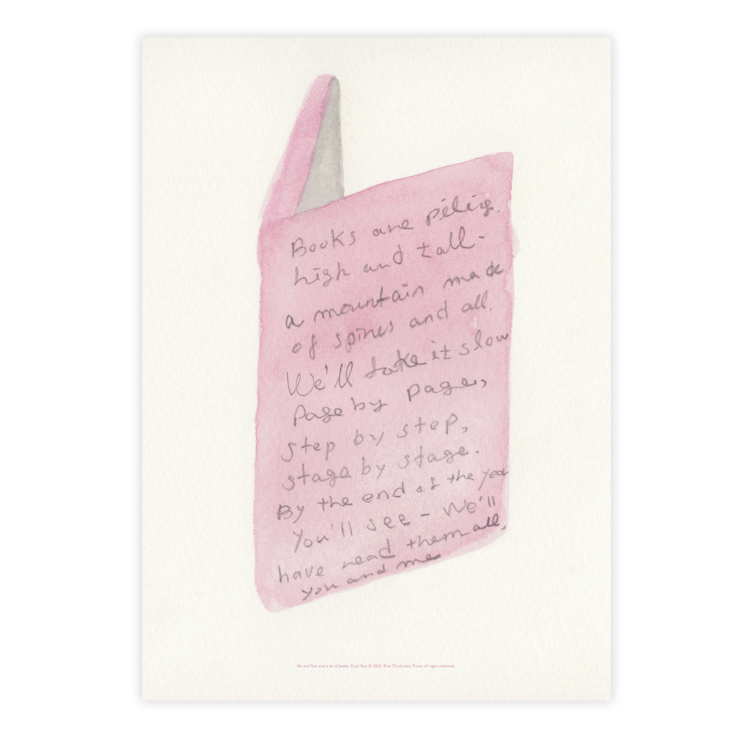 Books are piling
high and tall-
a mountain made
of spines and all.
We'll take it slow
Page by page,
step by step,
stage by stage.
By the end of the year
You'll see - We'll
have read them all,
you and me